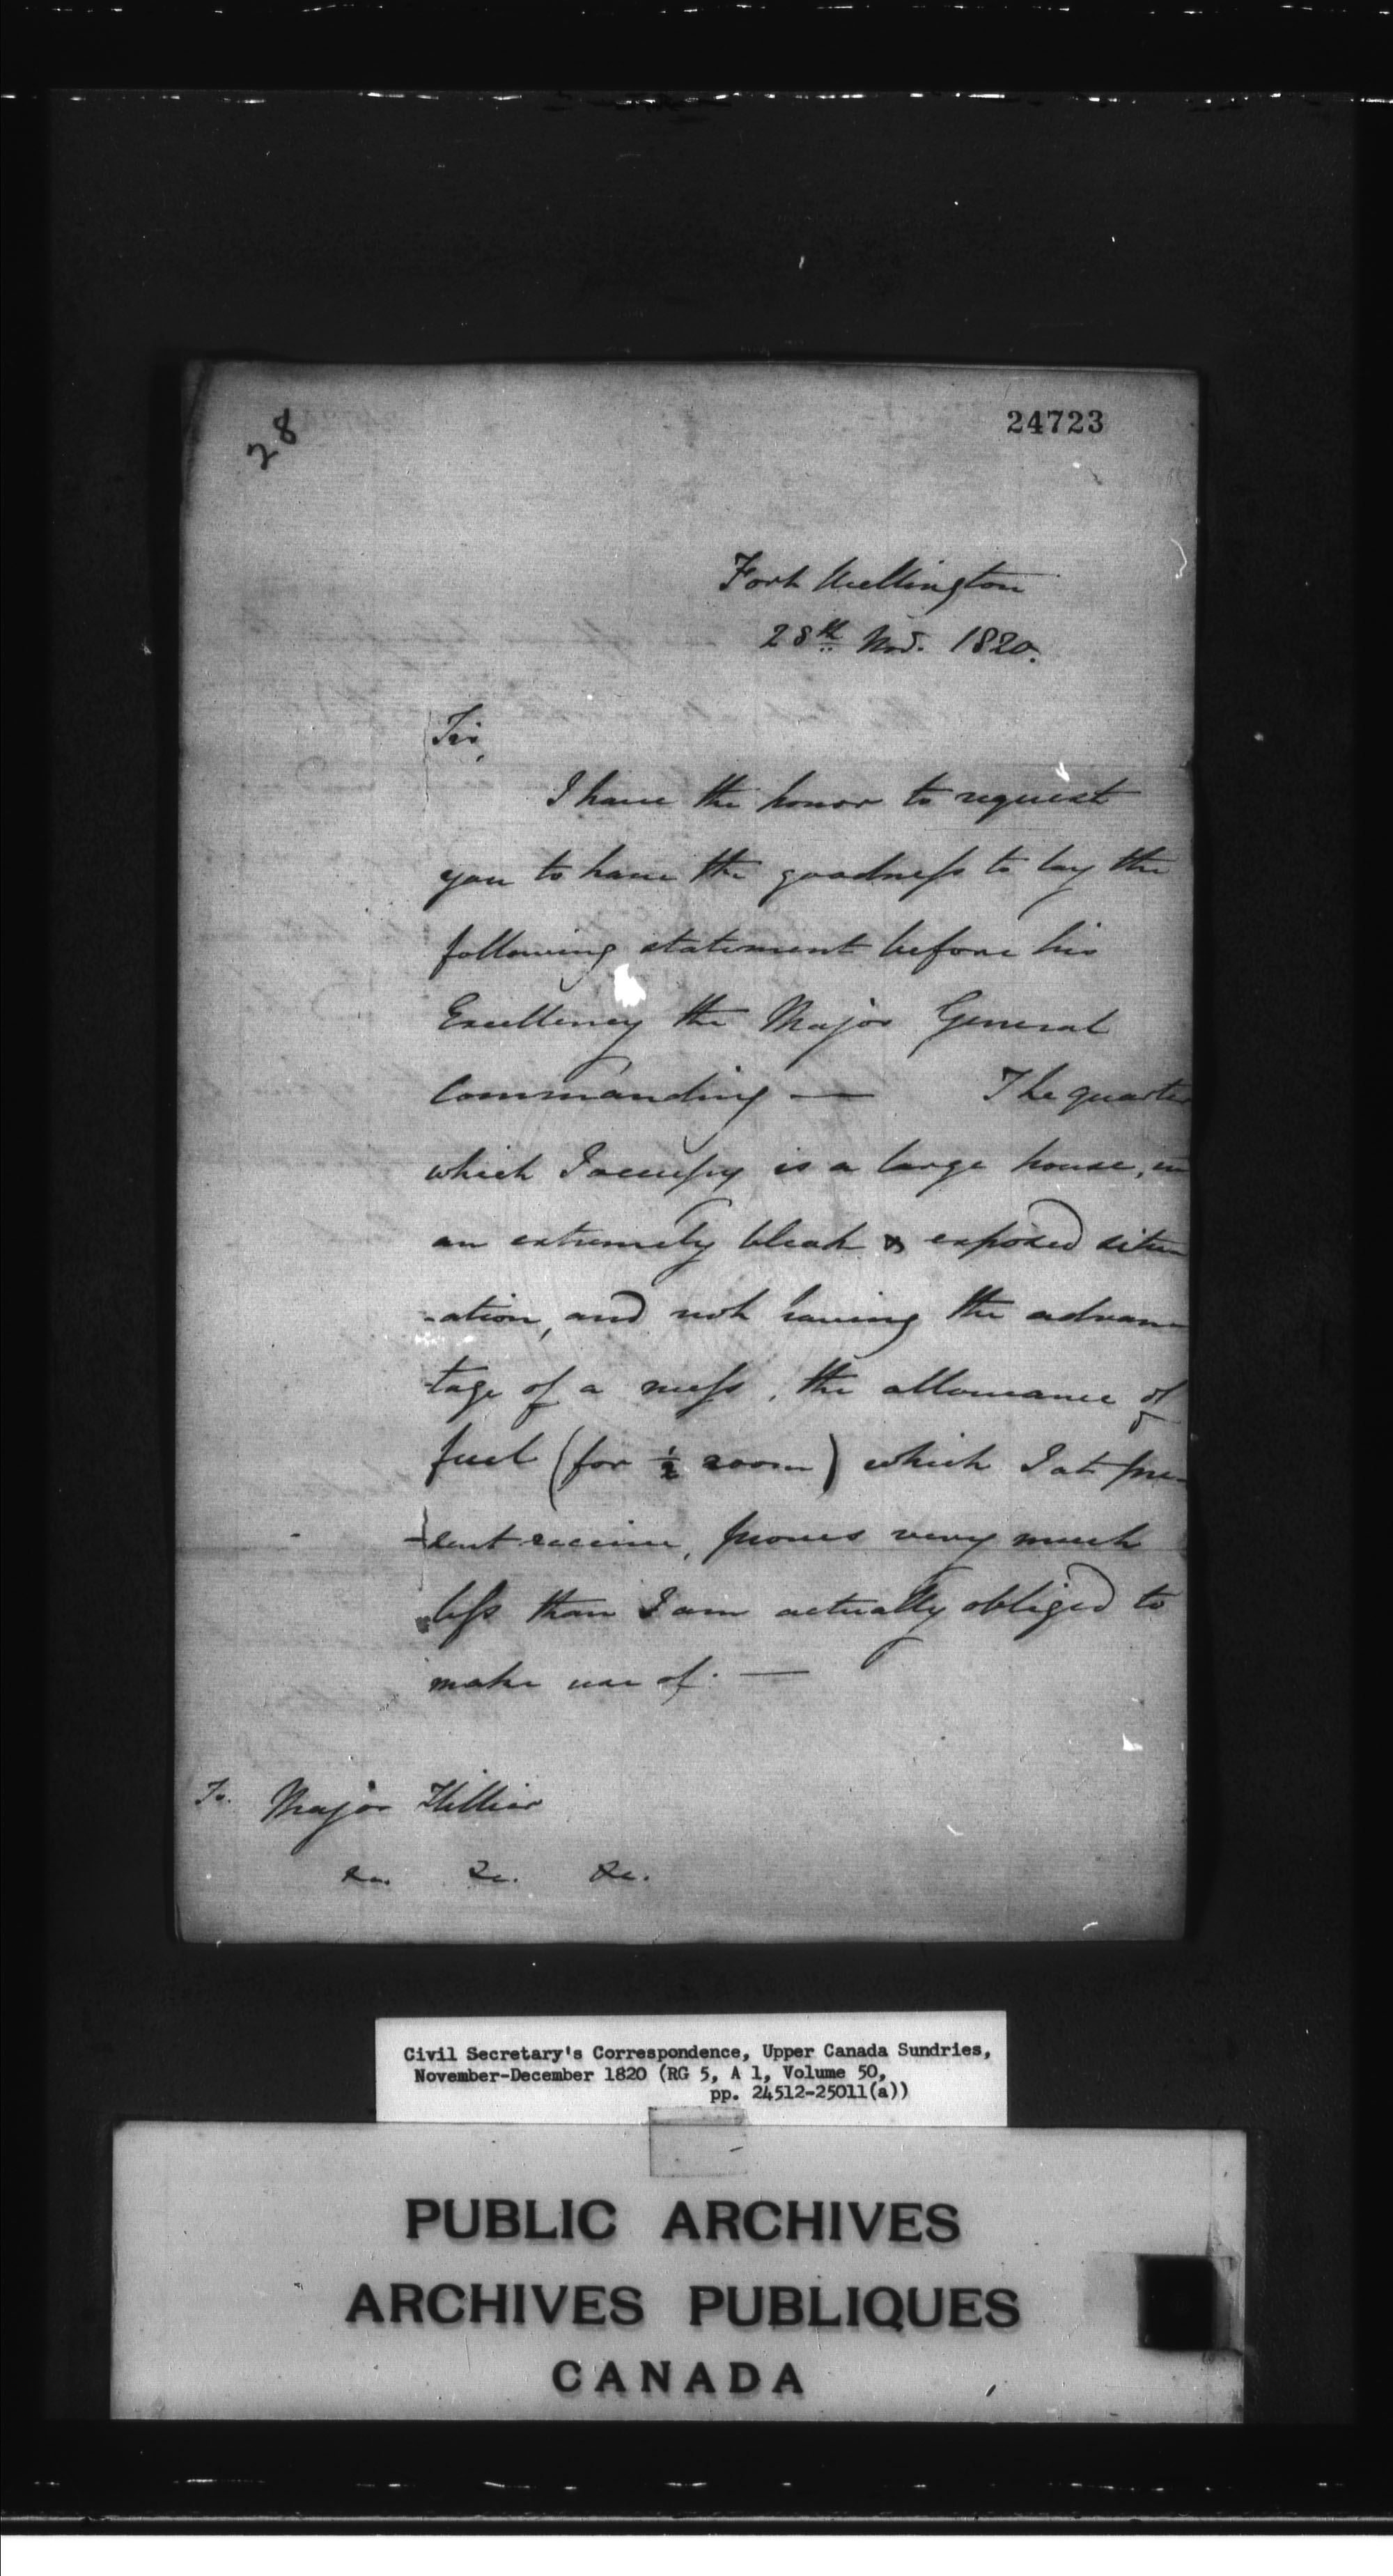 28
24723
Fort Wellington
28th Nov. 1820.
Sir,
I have the honor to request
you to have the goodness to lay the
following statement before his
Excellency the Major General
Commanding — The quarter
which I occupy is a large house, in
an extremely bleak & exposed situ
-ation, and not having the advan-
tage of a mess, the allowance of
fuel (for ½ room) which I at pre-
-sent receive, proves very much
less than I am actually obliged to
make use of. —
To. Major Hillier
&c. &c. &c.
Civil Secretary's Correspondence, Upper Canada Sundries,
November-December 1820 (RG 5, A 1, Volume 50,
pp. 24512-25011(a))
PUBLIC ARCHIVES
ARCHIVES PUBLIQUES
CANADA